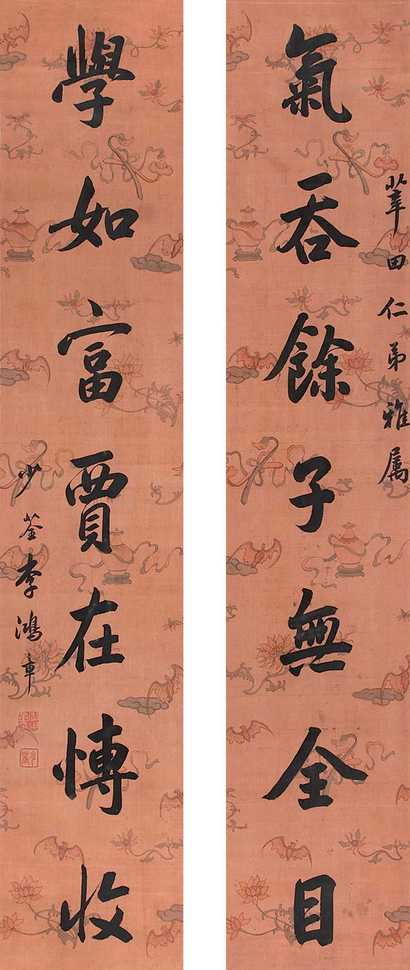 氣吞餘子無全目
莘田仁弟雅屬
學如富賈在愽收
少荃李鴻章